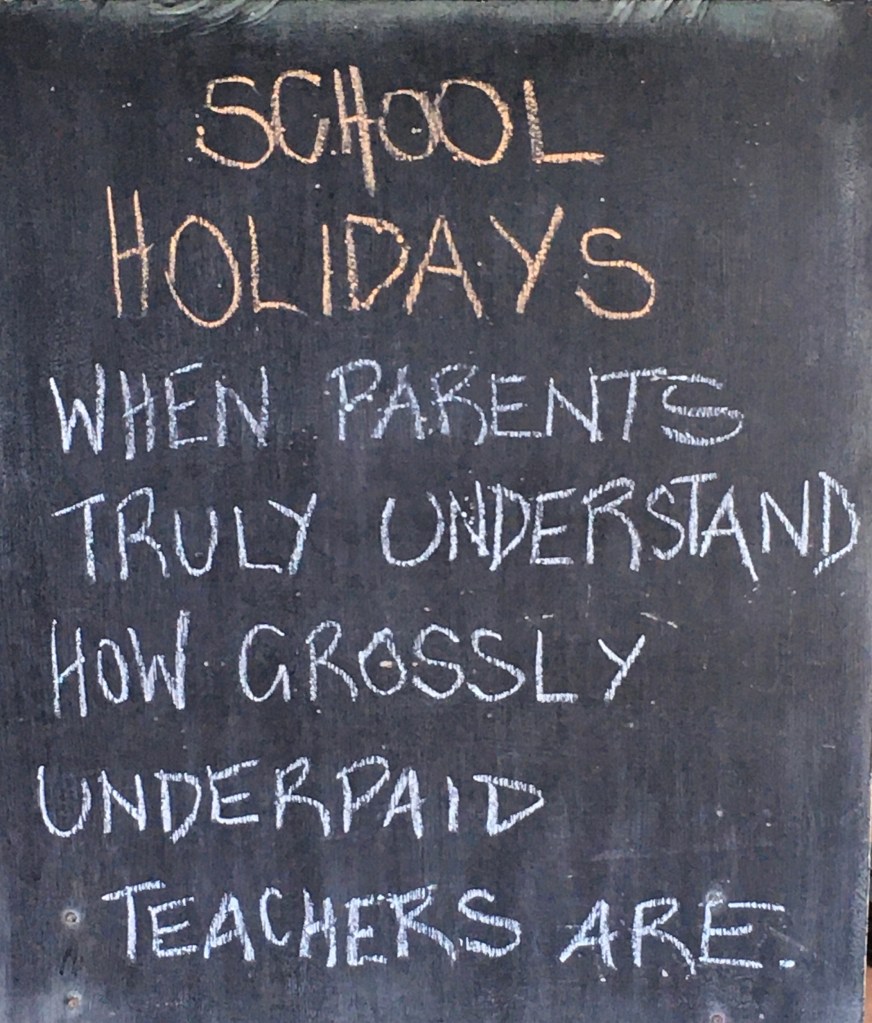 SCHOOL
HOLIDAYS
WHEN PARENTS
TRULY UNDERSTAND
HOW GROSSLY
UNDERPAID
TEACHERS ARE.